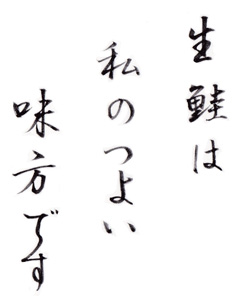 生鮭は
私のつよい
味方です